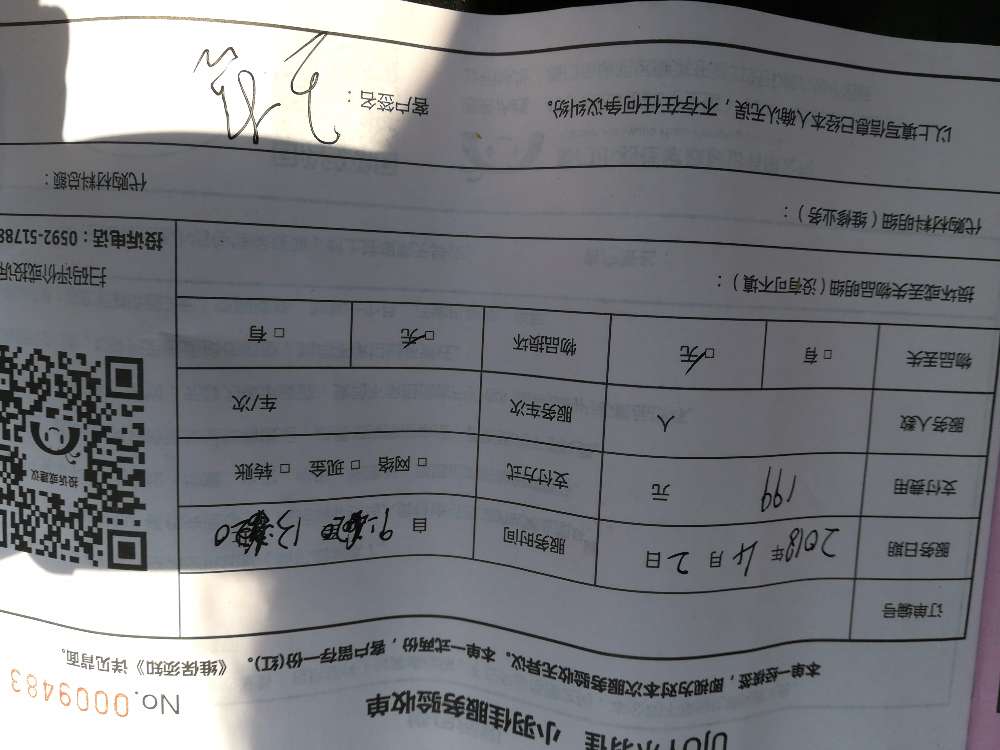 小羽佳服务验收单
No.0009483
本单一经续签，即视为对本次服务验收无异议。本单一式两份，客户留存一份(红)。《维保须知》详见背面。
订单编号
服务日期 2018年 4月 2日 服务时间 自
支付费用 199 元 支付方式 □ 网络 □ 现金 □ 转账
服务人数 人 服务车次 车/次
物品丢失 □ 有 □ 无 物品损坏 □ 无 □ 有
投诉或建议
扫码评价或投诉
投诉电话：0592-51788
损坏或丢失物品明细（没有可不填）：
代购材料明细（维修业务）：
代购材料总额：
以上填写信息已经本人确认无误，不存在任何争议纠纷。 客户签名：